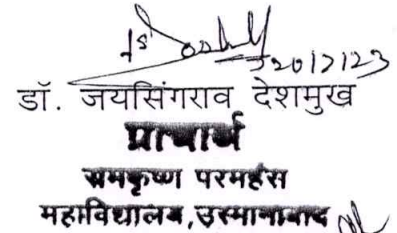 डॉ. जयसिंगराव देशमुख
प्राचार्य
रामकृष्ण परमहंस
महाविद्यालय,उस्मानाबाद